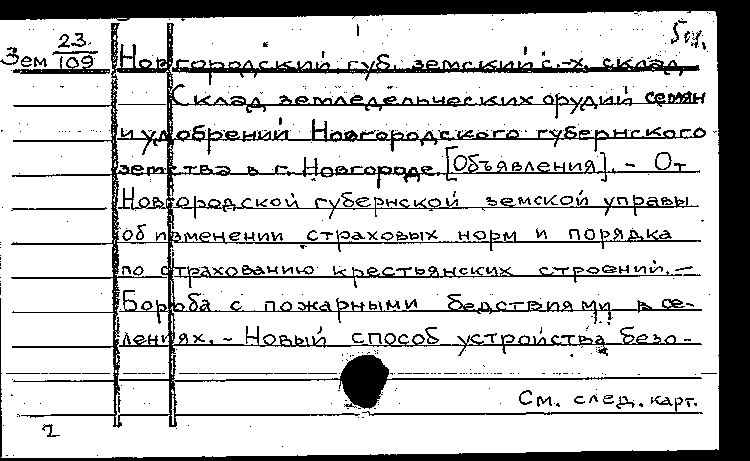 50к.
Зем 23/109 Новгородский губ. земский с.-х. склад.
Склад земледельческих орудий семян
и удобрений Новгородского губернского
земства в г. Новгороде. [Объявления]. - От
Новгородской губернской земской управы
об изменении страховых норм и порядка
по страхованию крестьянских строений. -
Борьба с пожарными бедствиями в се-
лениях. - Новый способ устройства безо-
См. след. карт.